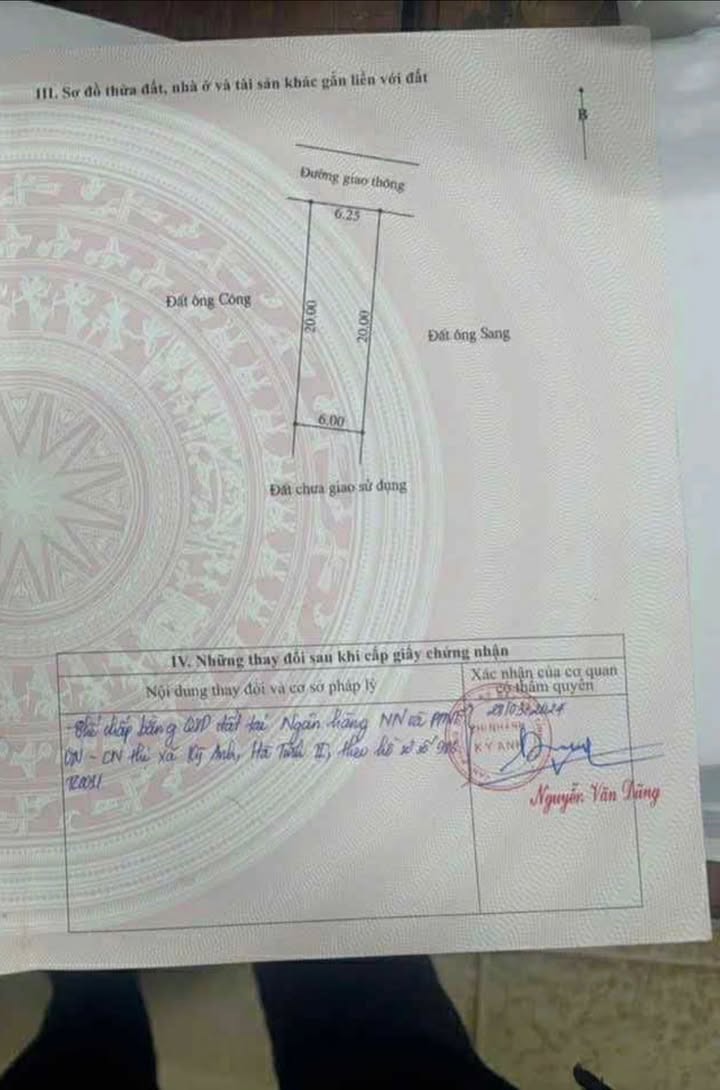 III. Sơ đồ thửa đất, nhà ở và tài sản khác gắn liền với đất
B
Đường giao thông
6.25
Đất ông Công
20.00
20.00
Đất ông Sang
6.00
Đất chưa giao sử dụng
IV. Những thay đổi sau khi cấp giấy chứng nhận
Nội dung thay đổi và cơ sở pháp lý
Xác nhận của cơ quan
có thẩm quyền
- Thế chấp bằng QSD đất tại Ngân hàng NN và PTNT
VN - CN thị xã Kỳ Anh, Hà Tĩnh II, theo hồ sơ số
KỲ ANH
Nguyễn Văn Dũng